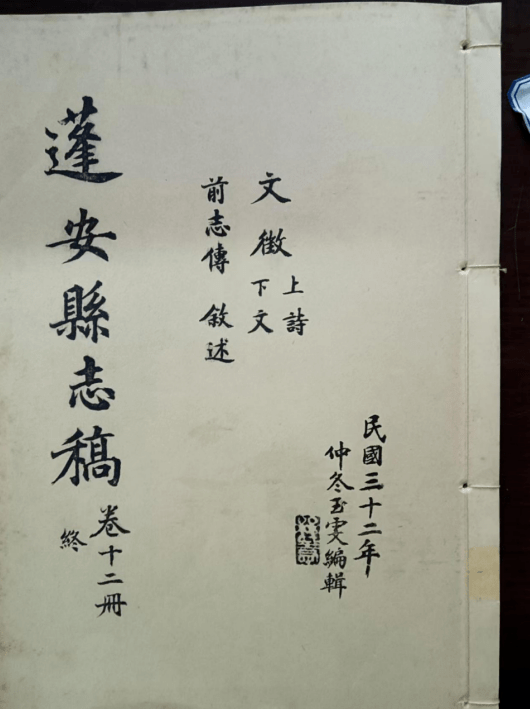 民國三十二年
仲冬玉雯編輯
文徵 上詩
下文
前志傳 敘述
蓬安縣志稿 卷十二冊
終